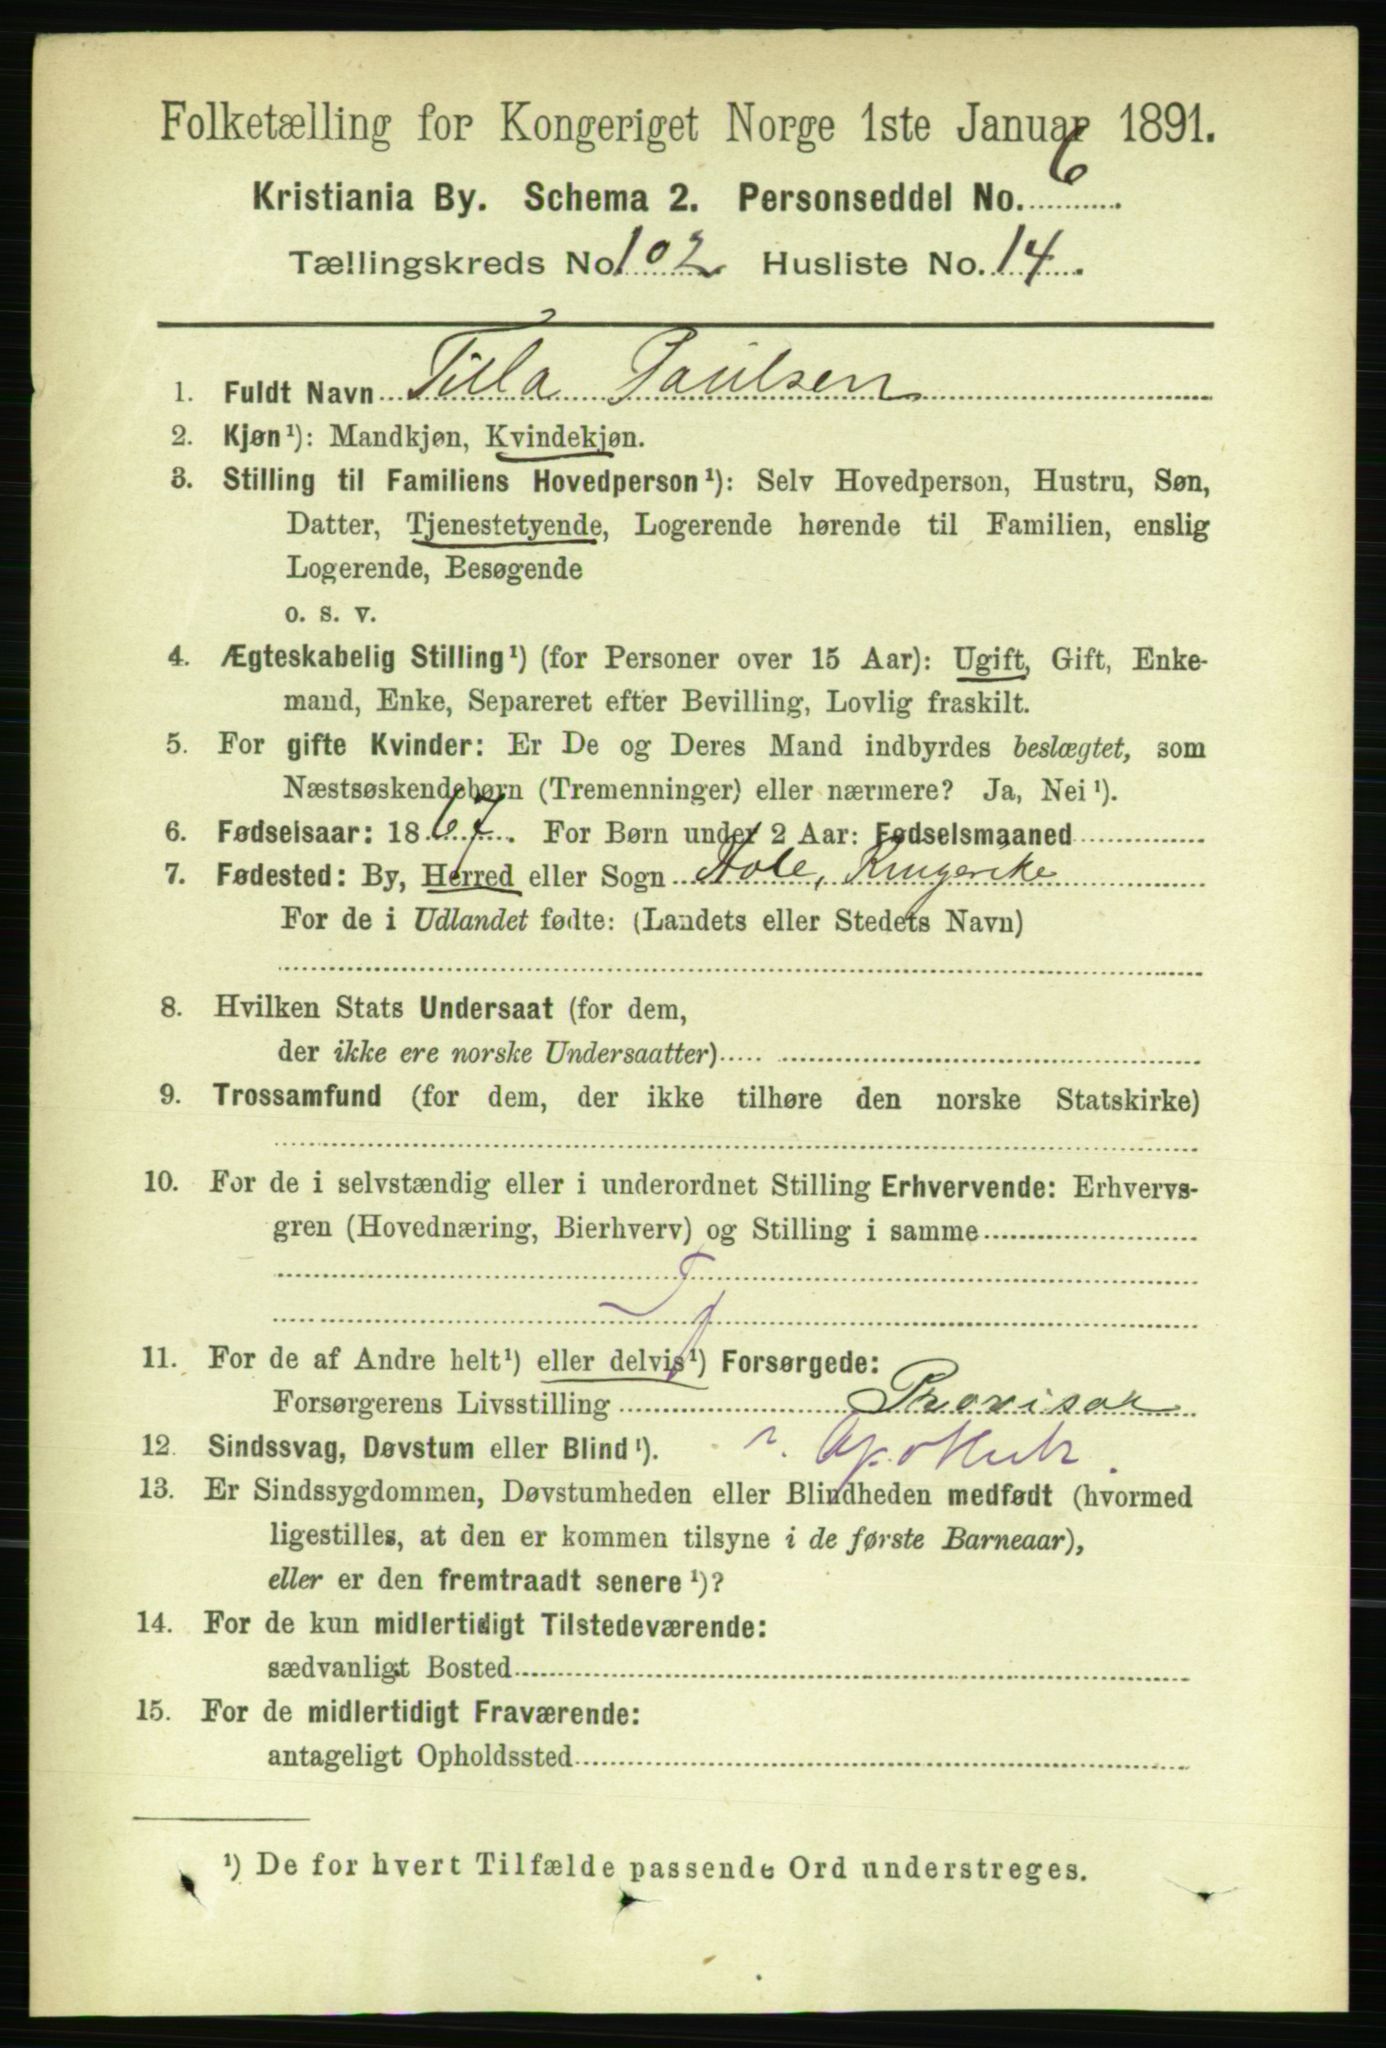 Folketælling for Kongeriget Norge 1ste Januar 1891.
Kristiania By. Schema 2. Personseddel No. 6
Tællingskreds No 102 Husliste No. 14.
1. Fuldt Navn Tilla Paulsen
2. Kjøn¹): Mandkjøn, Kvindekjøn.
3. Stilling til Familiens Hovedperson¹): Selv Hovedperson, Hustru, Søn,
Datter, Tjenestetyende, Logerende hørende til Familien, enslig
Logerende, Besøgende
o. s. v.
4. Ægteskabelig Stilling¹) (for Personer over 15 Aar): Ugift, Gift, Enke-
mand, Enke, Separeret efter Bevilling, Lovlig fraskilt.
5. For gifte Kvinder: Er De og Deres Mand indbyrdes beslægtet, som
Næstsøskendebørn (Tremenninger) eller nærmere? Ja, Nei¹).
6. Fødselsaar: 1867. For Børn under 2 Aar: Fødselsmaaned
7. Fødested: By, Herred eller Sogn Hole, Ringerike
For de i Udlandet fødte: (Landets eller Stedets Navn)
8. Hvilken Stats Undersaat (for dem,
der ikke ere norske Undersaatter)
9. Trossamfund (for dem, der ikke tilhøre den norske Statskirke)
10. For de i selvstændig eller i underordnet Stilling Erhvervende: Erhvervs-
gren (Hovednæring, Bierhverv) og Stilling i samme
T
11. For de af Andre helt¹) eller delvis¹) Forsørgede:
Forsørgerens Livsstilling Provisor
12. Sindssvag, Døvstum eller Blind¹).
13. Er Sindssygdommen, Døvstumheden eller Blindheden medfødt (hvormed
ligestilles, at den er kommen tilsyne i de første Barneaar),
eller er den fremtraadt senere¹)?
14. For de kun midlertidigt Tilstedeværende:
sædvanligt Bosted
15. For de midlertidigt Fraværende:
antageligt Opholdssted
¹) De for hvert Tilfælde passende Ord understreges.